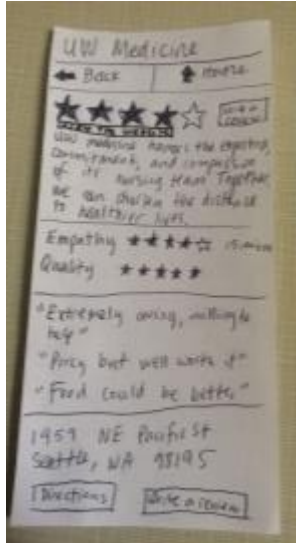 UW Medicine
Back Home
UW medicine honors the expertise,
commitment, and compassion
of its nursing team Together,
we can shorten the distance
to healthier lives.
Empathy
Quality
"Extremely caring, willing to
help"
"Pricy but well worth it"
"Food could be better"
1959 NE Pacific St
Seattle, WA 98195
Directions Write a review